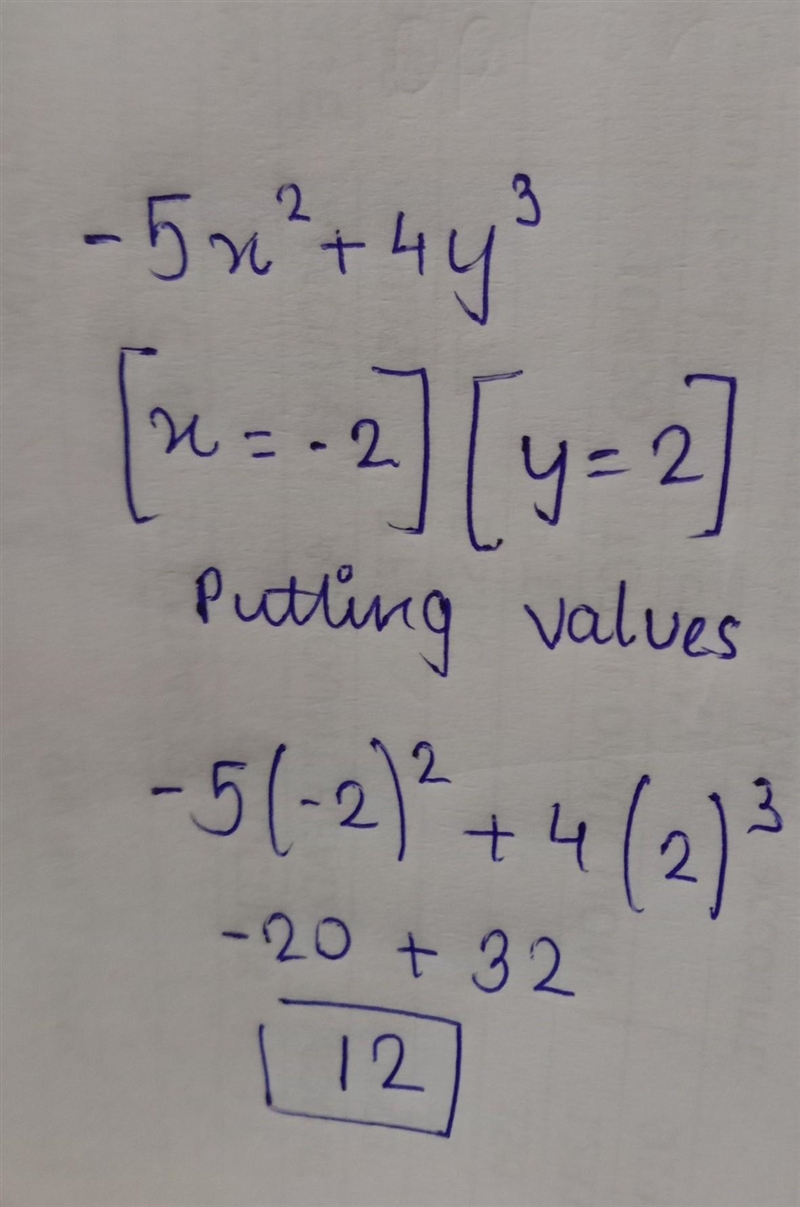 -5x² + 4y³
[x = -2] [y = 2]
Putting values
-5(-2)² + 4(2)³
-20 + 32
12